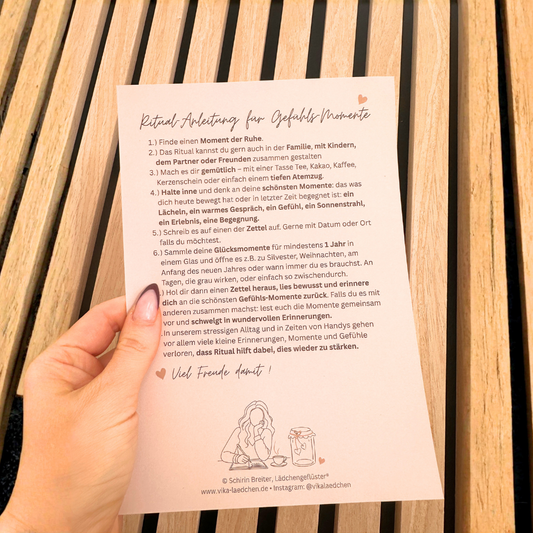 Ritual-Anleitung für Gefühls-Momente
1.) Finde einen Moment der Ruhe.
2.) Das Ritual kannst du gern auch in der Familie, mit Kindern,
dem Partner oder Freunden zusammen gestalten
3.) Mach es dir gemütlich – mit einer Tasse Tee, Kakao, Kaffee,
Kerzenschein oder einfach einem tiefen Atemzug.
4.) Halte inne und denk an deine schönsten Momente: das was
dich heute bewegt hat oder in letzter Zeit begegnet ist: ein
Lächeln, ein warmes Gespräch, ein Gefühl, ein Sonnenstrahl,
ein Erlebnis, eine Begegnung.
5.) Schreib es auf einen der Zettel auf. Gerne mit Datum oder Ort
falls du möchtest.
6.) Sammle deine Glücksmomente für mindestens 1 Jahr in
einem Glas und öffne es z.B. zu Silvester, Weihnachten, am
Anfang des neuen Jahres oder wann immer du es brauchst. An
Tagen, die grau wirken, oder einfach so zwischendurch.
.) Hol dir dann einen Zettel heraus, lies bewusst und erinnere
dich an die schönsten Gefühls-Momente zurück. Falls du es mit
anderen zusammen machst: lest euch die Momente gemeinsam
vor und schwelgt in wundervollen Erinnerungen.
In unserem stressigen Alltag und in Zeiten von Handys gehen
vor allem viele kleine Erinnerungen, Momente und Gefühle
verloren, dass Ritual hilft dabei, dies wieder zu stärken.
Viel Freude damit !
© Schirin Breiter, Lädchengeflüster®
www.vika-laedchen.de • Instagram: @vikalaedchen